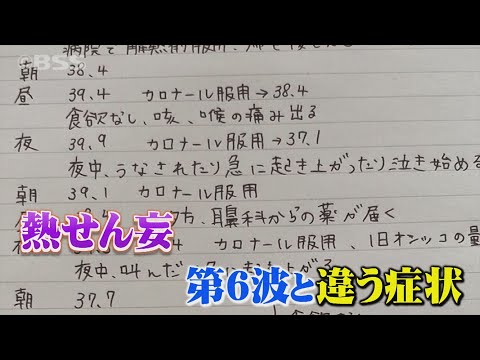 BSS
病院で解熱剤服用、
朝 38.4
昼 39.4 カロナール服用→38.4
食欲なし、咳、喉の痛み出る
夜 39.9 カロナール服用→37.1
夜中、うなされたり急に起き上がったり泣き始める
朝 39.1 カロナール服用
方、耳鼻科からの薬が届く
熱せん妄
4 カロナール服用、1日オシッコの量
夜中、叫んだ
第6波と違う症状
朝 37.7